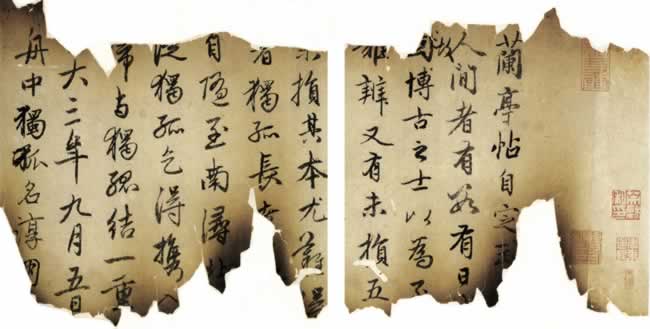 蘭亭帖自定
人間者有數有日
故博古之士以為
難辨又有未損五
損其本尤難得
者獨孤長
自隨至南潯北
從獨孤乞得攜入
与獨孤結一重
大三年九月五日
舟中獨孤名淳朋